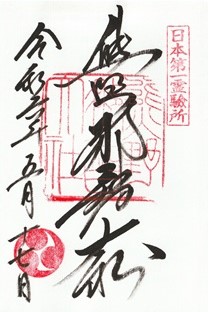 日本第一霊験所
熊野那智大社
令和年五月十七日